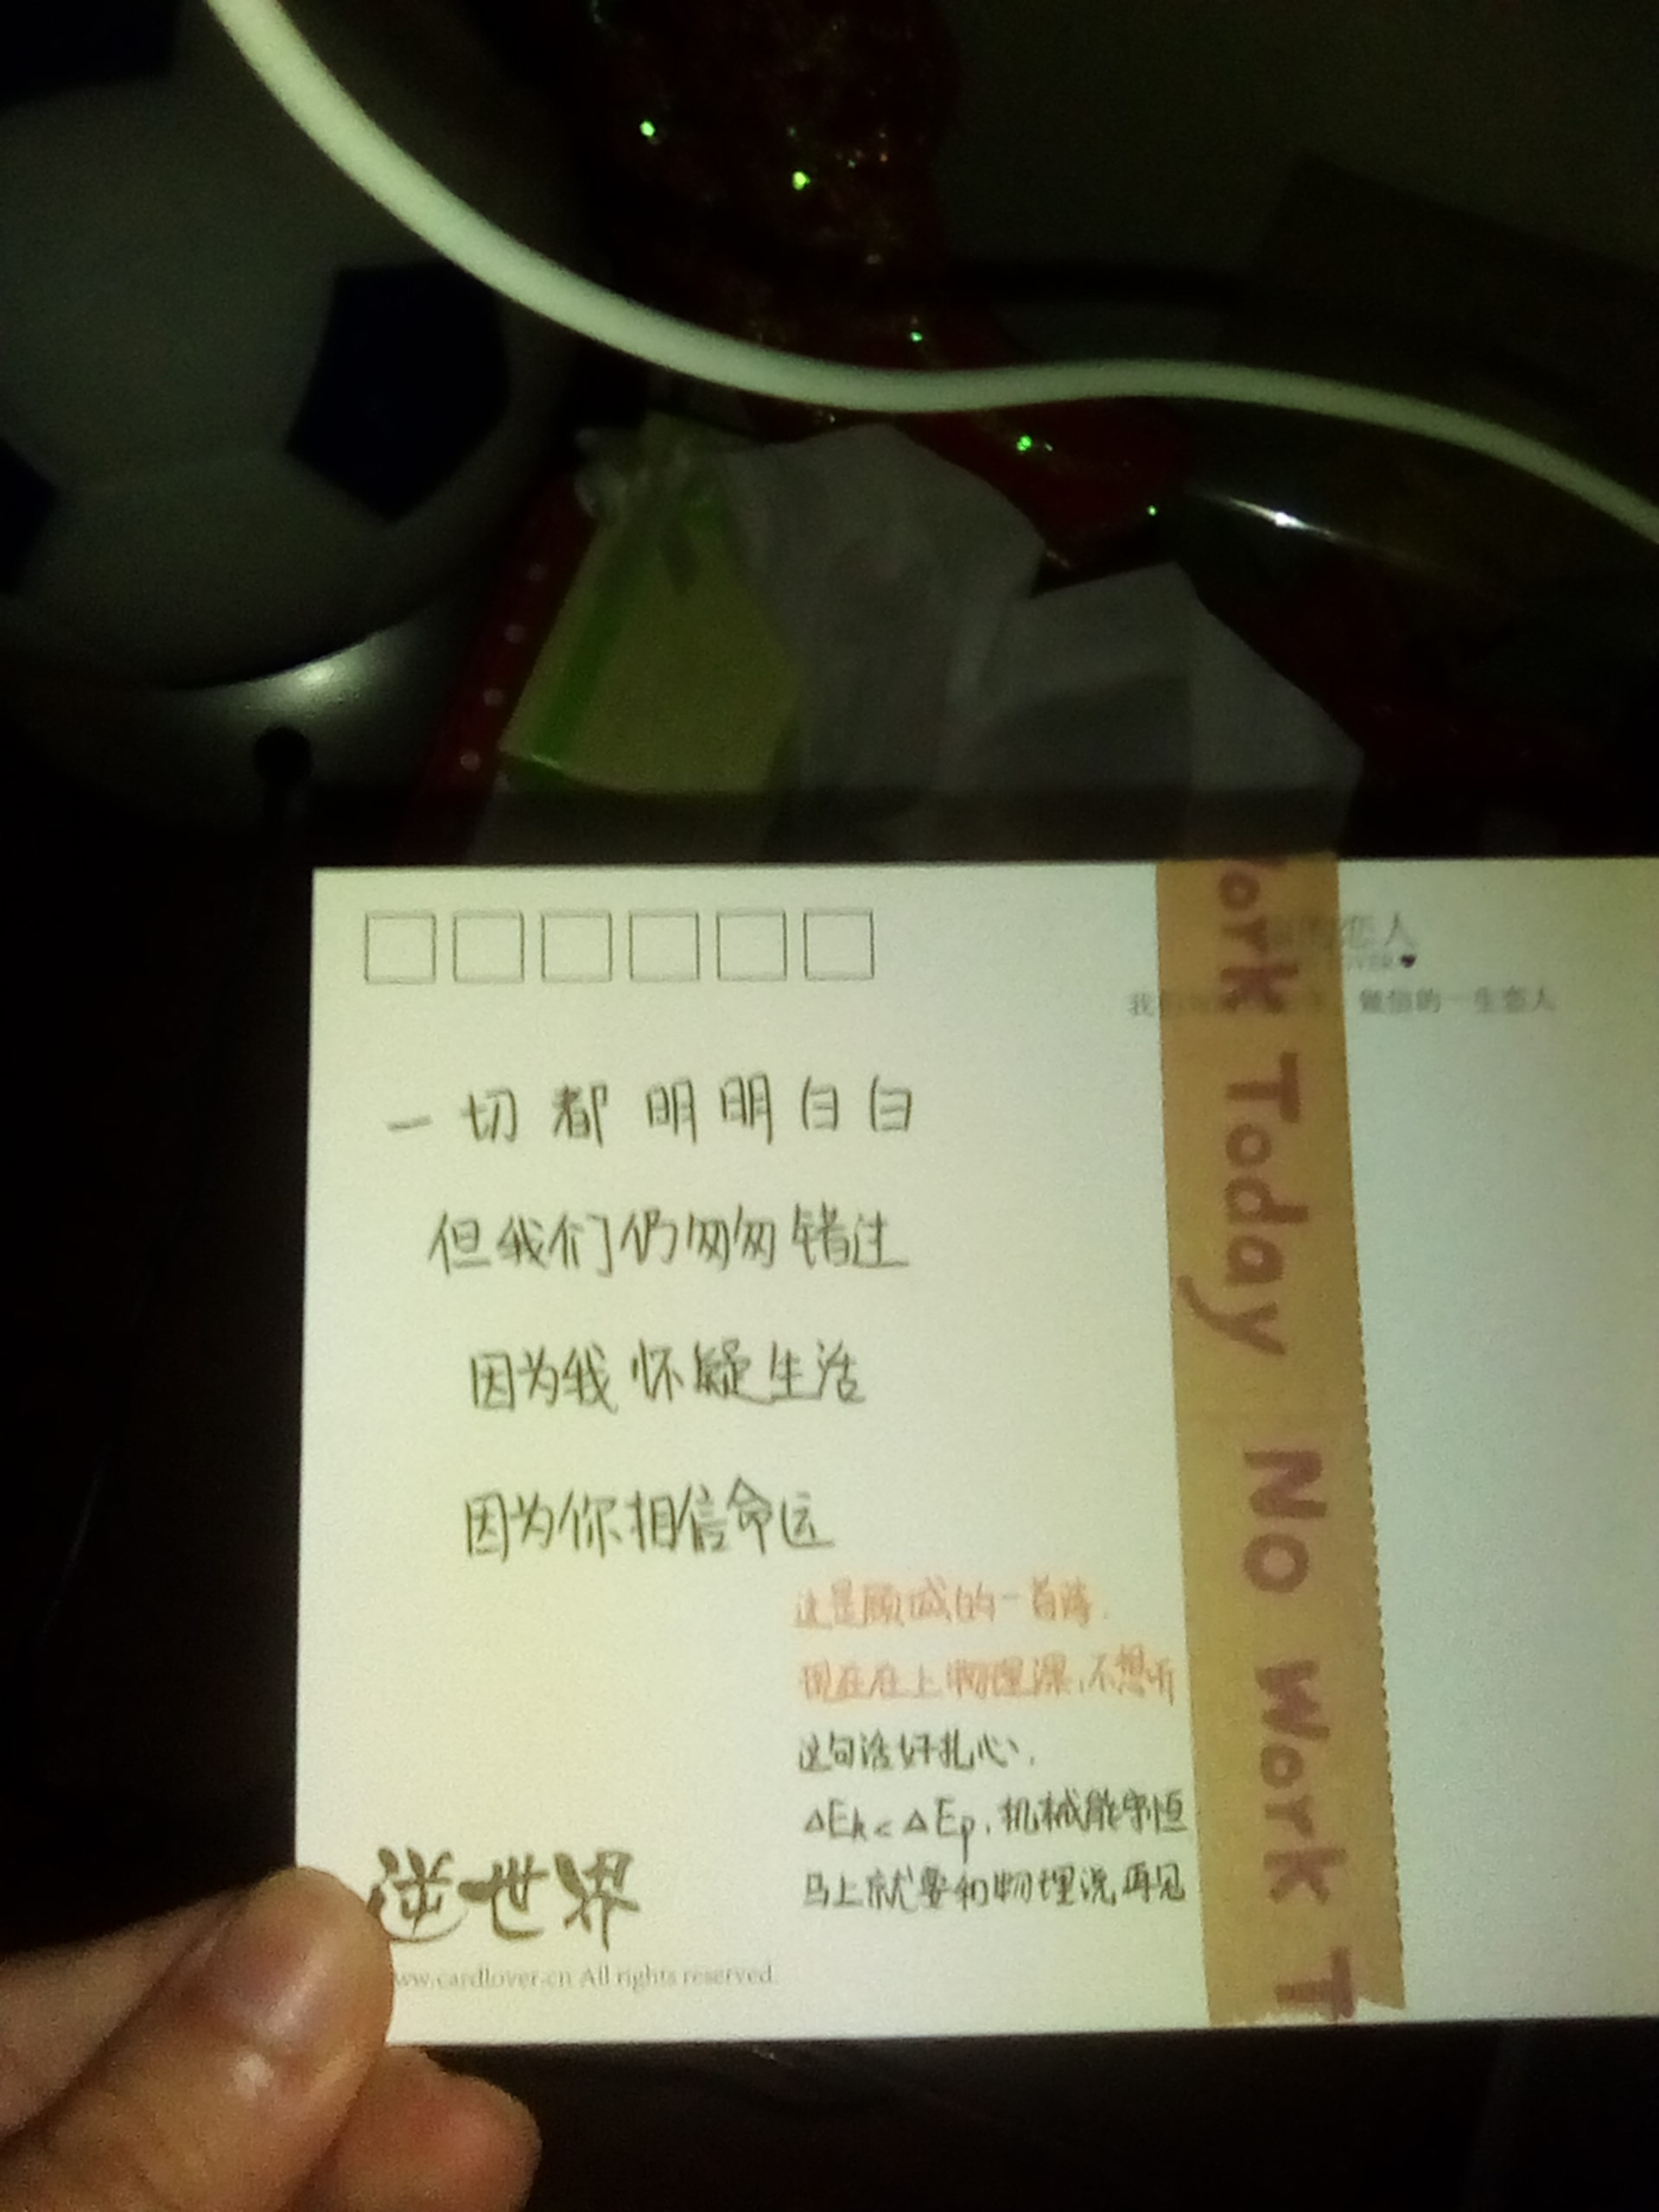 恋人
一切都明明白白
但我们仍匆匆错过
因为我怀疑生活
因为你相信命运
这是顾城的一首诗.
现在在上物理课,不想听
这句话好扎心.
ΔEk<ΔEp,机械能守恒
马上就要和物理说再见
逆世界
ww.cardlover.cn All rights reserved.
ork Today No Work T